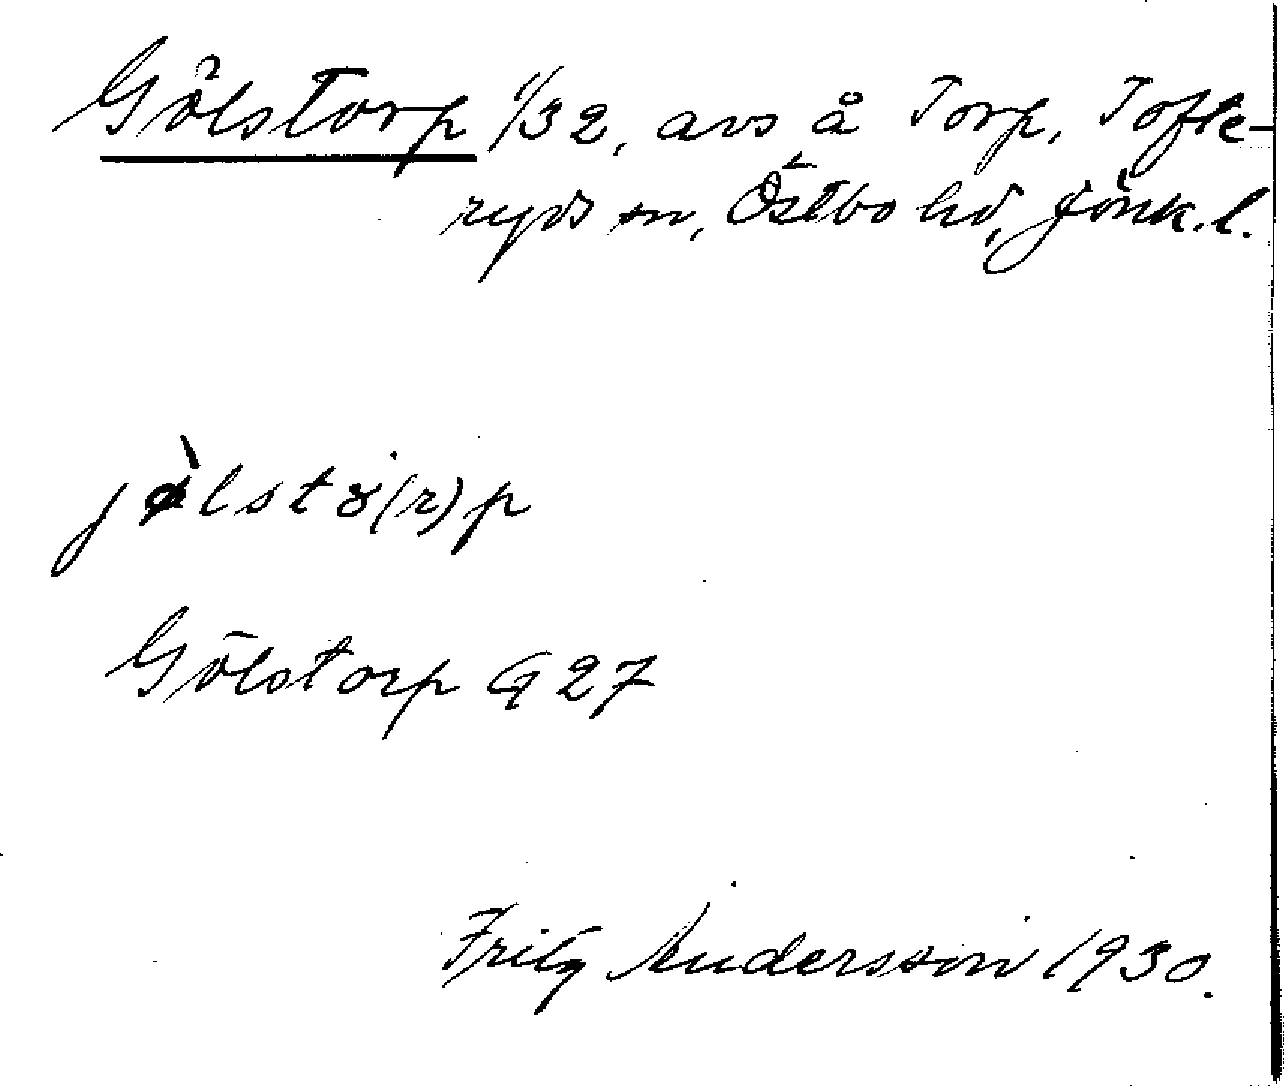 Gölstorp 1/32, avs å Torp, Tofte-
ryds sn, Östbo hd, Jönk. l.
jø̀lstȯ(r)p
Gölstorp G 27
Fritz Andersson 1930.